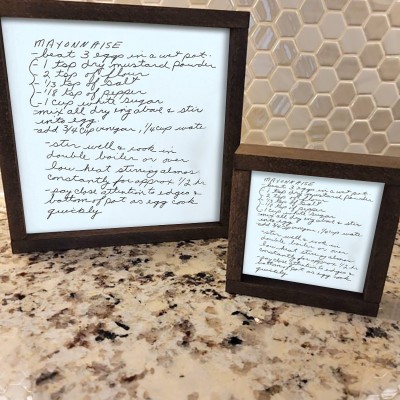 MAYONNAISE
-beat 3 eggs in a wet pot.
-1 tsp dry mustard powder
-2 tsp of flour
-1/3 tsp of salt
-1/8 tsp of pepper
-1 cup white sugar
-mix all dry ing above & stir
into egg.
-add 3/4 cup vinegar, 1/4 cup wate
-stir well & cook in
double boiler or over
low heat stirring almos
constantly for approx 1/2 hr
-pay close attention to edges &
bottom of pot as egg cook
quickly
MAYONNAISE
-beat 3 eggs in a wet pot.
-1 tsp dry mustard powder
-2 tsp of flour
-1/3 tsp of salt
-1/8 tsp of pepper
-1 cup white sugar
-mix all dry ing above & stir
into egg.
-add 3/4 cup vinegar, 1/4 cup wate
-stir well & cook in
double boiler or over
low heat stirring almos
constantly for approx 1/2 hr
-pay close attention to edges &
bottom of pot as egg cook
quickly